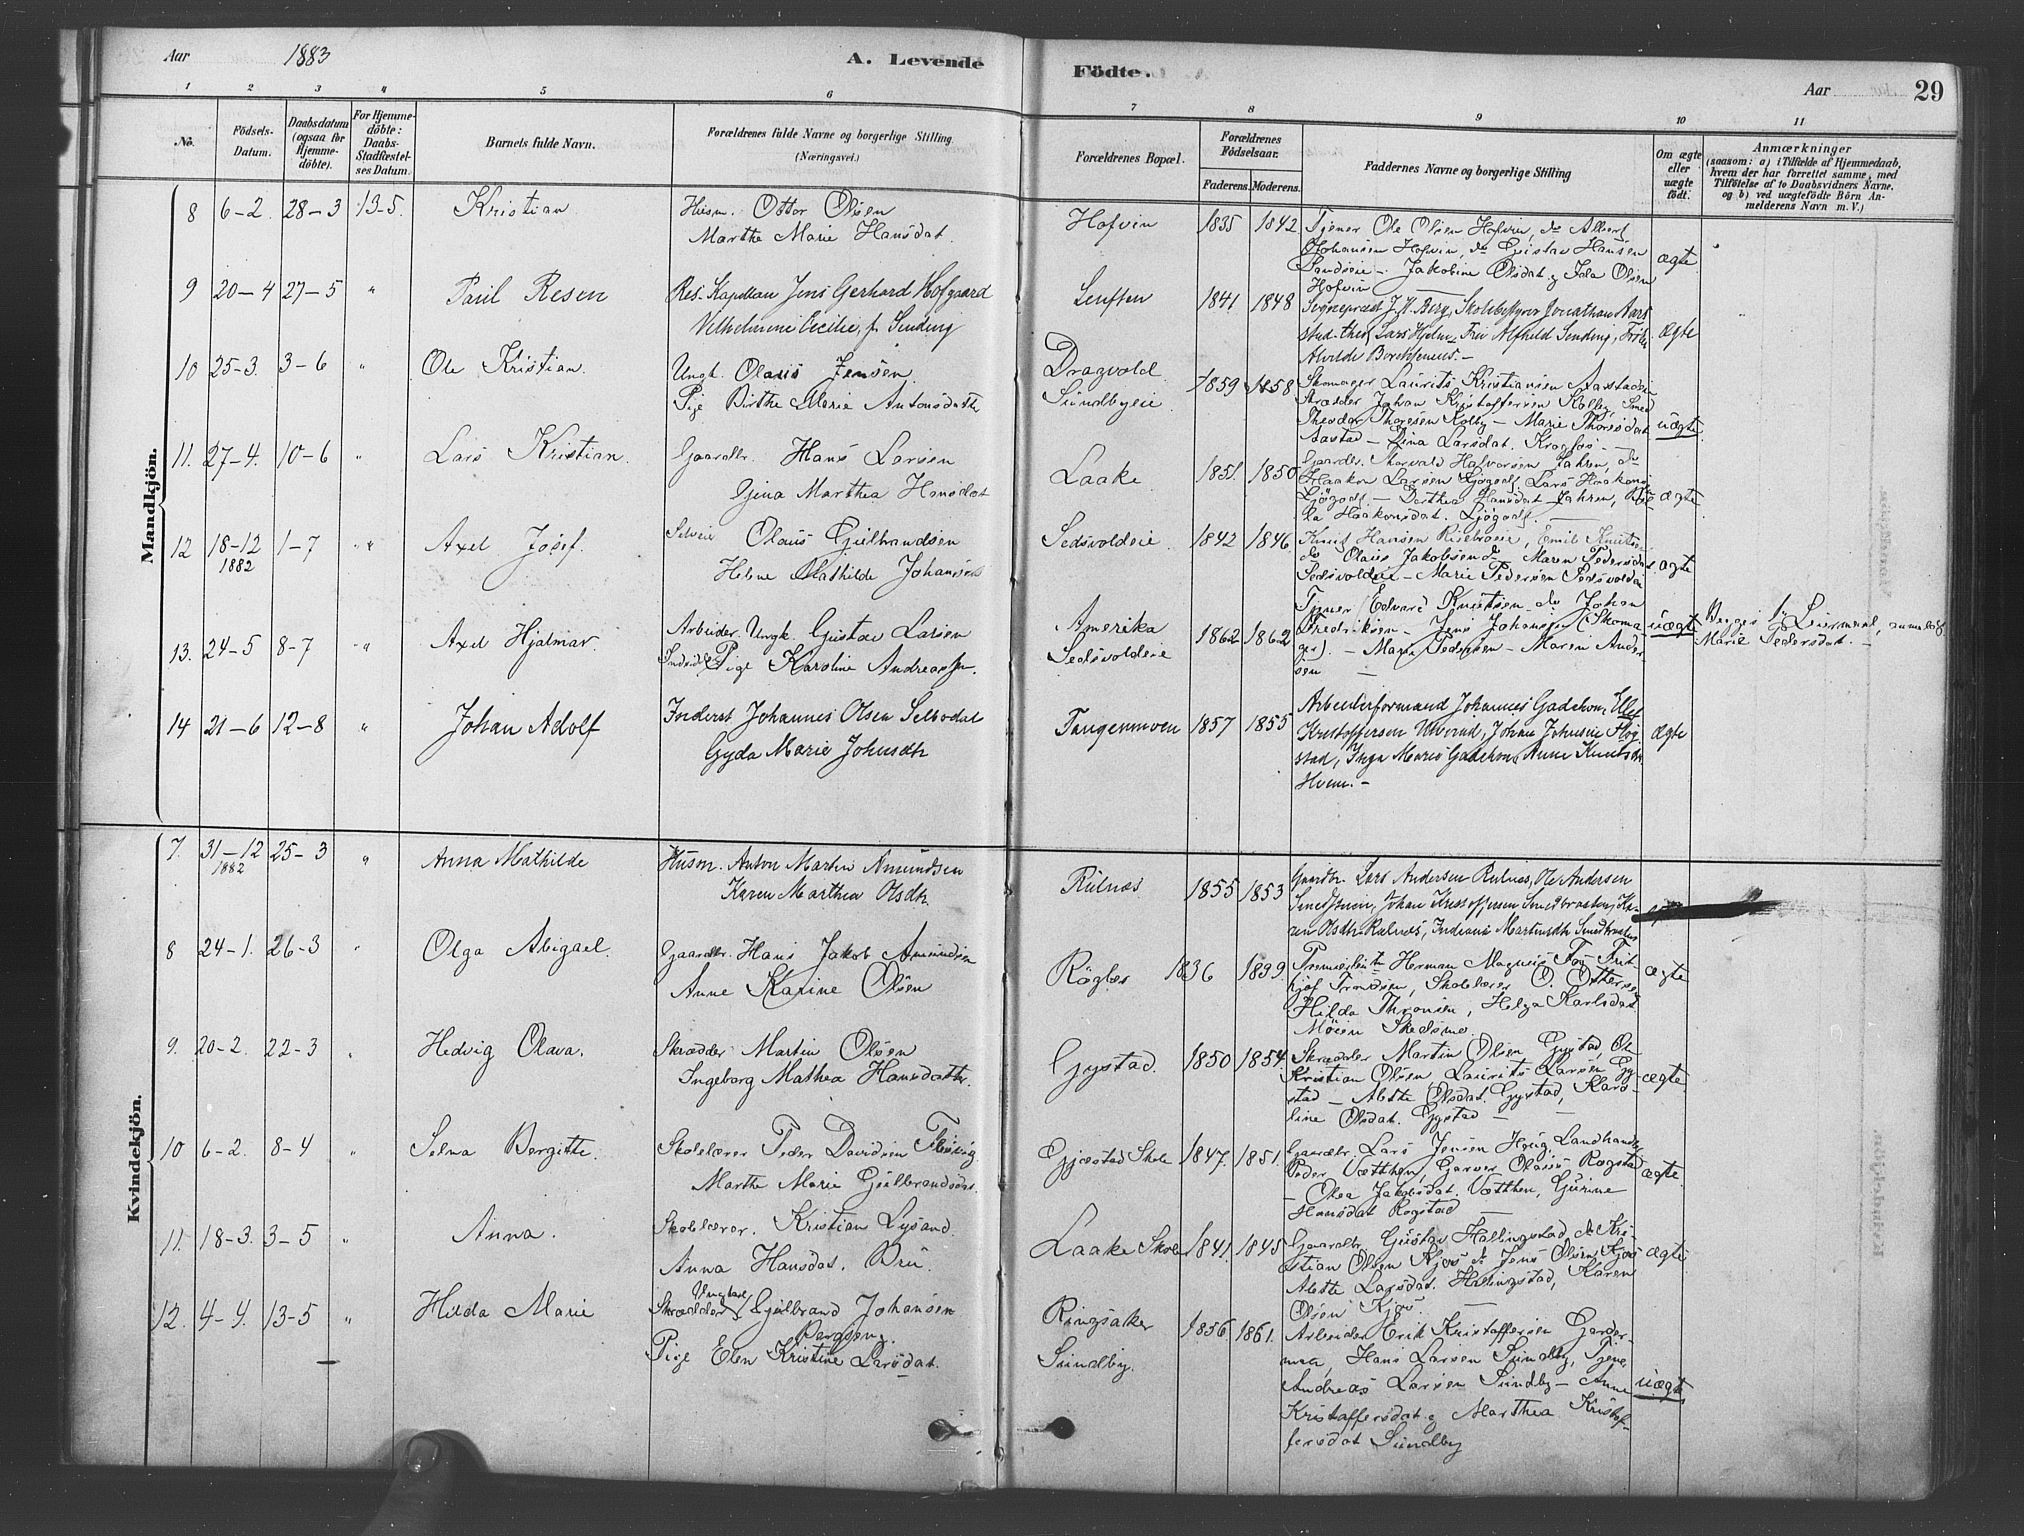 Aar 1883 A. Levende Födte. Aar 29
1 2 3 4 5 6 7 8 9 10 11
No.
Födsels-Datum.
Daabsdatum (ogsaa for Hjemmedöbte).
For Hjemmedöbte: Daabs-Stadfæstelses Datum.
Barnets fulde Navn.
Forældrenes fulde Navne og borgerlige Stilling (Næringsvei.)
Forældrenes Bopæl.
Forældrenes Födselsaar.
Faderens. Moderens.
Faddernes Navne og borgerlige Stilling
Om ægte eller uægte födt.
Anmærkninger
(saasom: a) i Tilfælde af Hjemmedaab,
hvem der har forrettet samme, med
Tilföielse af to Daabsvidners Navne,
og b) ved uægtefödte Börn An-
melderens Navn m. V.)
Mandkjön.
8 6-2. 28-3 13-5. Kristian Husm. Ottar Olsen
Marthe Marie Hansdat.
Hofvin 1835 1842 Tjener Ole Olsen Hofvin, do Albert
Johansen Hofvin, do Gustav Hansen
Jakobine Olsdat. Ida Olsen
Hofvin
ægte
9 20-4 27-5 " Paul Resen Res. Kapellan Jens Gerhard Hofgaard
Vilhelmine Cecilie, f. Sinding
1841 1848 Sogneprest Berg, Skolebestyrer Jonathan Aars
stud. theol. Lars Hjelm, Fru Alfhild Sinding, Frøken
Alvilde Borchsenius.-
ægte
10 25-3. 3-6 " Ole Kristian. Ungk. Olaus Jensen.
Pige Birthe Marie Antonsdatter
Dragvold
Sundbyeie
1859 1858 Skomager Laurits Kristiansen Aarstadeie
Skrædder Johan Kristoffersen Kolby, Smed
Theodor Thoresen Kolby - Marie Thoresdat.
Aastad - Lina Larsdat. Krogfos -
uægte
11. 27-4. 10-6 " Lars Kristian. Gaardbr. Hans Larsen
Gjina Marthea Hansdat
Laake 1851. 1850 Gaardbr. Thorvald Halvorsen Jahren, do
Haakon Larsen Ljøgodt, Lars Haakons.
Ljøgodt - Dorthea Hansdat. Jahren,
Haakonsdat. Ljøgodt.
ægte
12 18-12 1882 1-7 " Axel Josef. Selveier Olaus Gulbrandsen
Helene Mathilde Johansen
Sedsvoldeie 1842 1846. Knud Hansen Risebroeie, Emil Knutsen
do Olaus Jakobsen do Maren Pedersdat.
Sedsvoldeie - Marie Pedersen Sedsvoldeie
ægte
13. 24-5 8-7 " Axel Hjalmar. Arbeider. Ungk. Gustav Larsen
Pige Karoline Andreassen.
Amerika
Sedsvoldeie
1862 1862 Tjener Edvard Knutsen do Johan
Fredriksen - Jens Johansen (Skoma-
ger). - Marie Pedersen - Maren Ander-
sen -
uægte anmeldt
Marie Pedersdat. -
14 21-6 12-8 " Johan Adolf Inderst. Johannes Olsen Selbodal
Gyda Marie Johnsdtr
Tangenmoen 1857 1855 Arbeiderformand Johannes Gadehom,
Kristoffersen, Johan Johnsen Høg-
stad, Inga Marie Gadehom, Anne Knutsdtr
Hvam.-
ægte
Kvindekjön.
7. 31-12 1882 25-3 " Anna Mathilde Husm. Anton Martin Amundsen
Karen Marthea Olsdtr.
Rulnæs 1855 1853 Gaardbr. Lars Andersen Rulnæs, Ole Andersen
Johan Kristoffersen Smedbraaten, Ka-
ren Olsdtr Rulnæs, Indiane Martinsdtr Smedbraaten
8 24-1. 26-3 " Olga Abigael. Gaardbr. Hans Jakob Amundsen
Anne Karine Olsen
1836 1839 Premierlieutn Herman Magnus Foy Frit-
hjof Trondsen, Skolelærer O. Ottersen
Hilda Thronsen, Helga Karlsdat.
Moen Skedsmo.
ægte
9. 20-2. 22-3 " Hedvig Olava. Skrædder Martin Olsen
Ingeborg Mathea Hansdatter.
Gystad. 1850 1854. Skrædder Martin Olsen Gystad, Ole
Kristian Olsen Laurits Larsen Gy-
stad - Alette Olsdat. Gystad, Karo-
line Olsdat. Gystad -
ægte
10 6-2. 8-4 " Selma Bergitte. Skolelærer Peder Davidsen
Marthe Marie Gulbrandsdat.
Gjæstad Skole 1847. 1851. Gaardbr. Lars Jensen Haug, Landhandl.
Peder Vætthen, Garver Olaus Rogstad
- Olea Jakobsdat. Vætthen, Gurine
Hansdat Rogstad -
ægte
11. 18-3. 3-5 " Anna. Skolelærer. Kristian Lysand
Anna Hansdat. Bru.
Laake Skole 1841. 1845 Gaardbr. Gustav Hallingstad do Kri-
stian Olsen Kjos do Jens Olsen Kjos
Alette Larsdat. Hallingstad, Karen
Olsen Kjos. -
ægte
12. 4-4. 13-5 " Hilda Marie Skrædder Ungkarl Gulbrand Johansen
Bergseng.
Pige Elen Kristine Larsdat.
Ringsaker
Sundby.
1856 1861. Arbeider Erik Kristoffersen Garder-
moa, Hans Larsen Sundby, Tjener
Andreas Larsen Sundby - Anne
Kristoffersdat. & Marthea Kristof-
fersdat Sundby
uægte